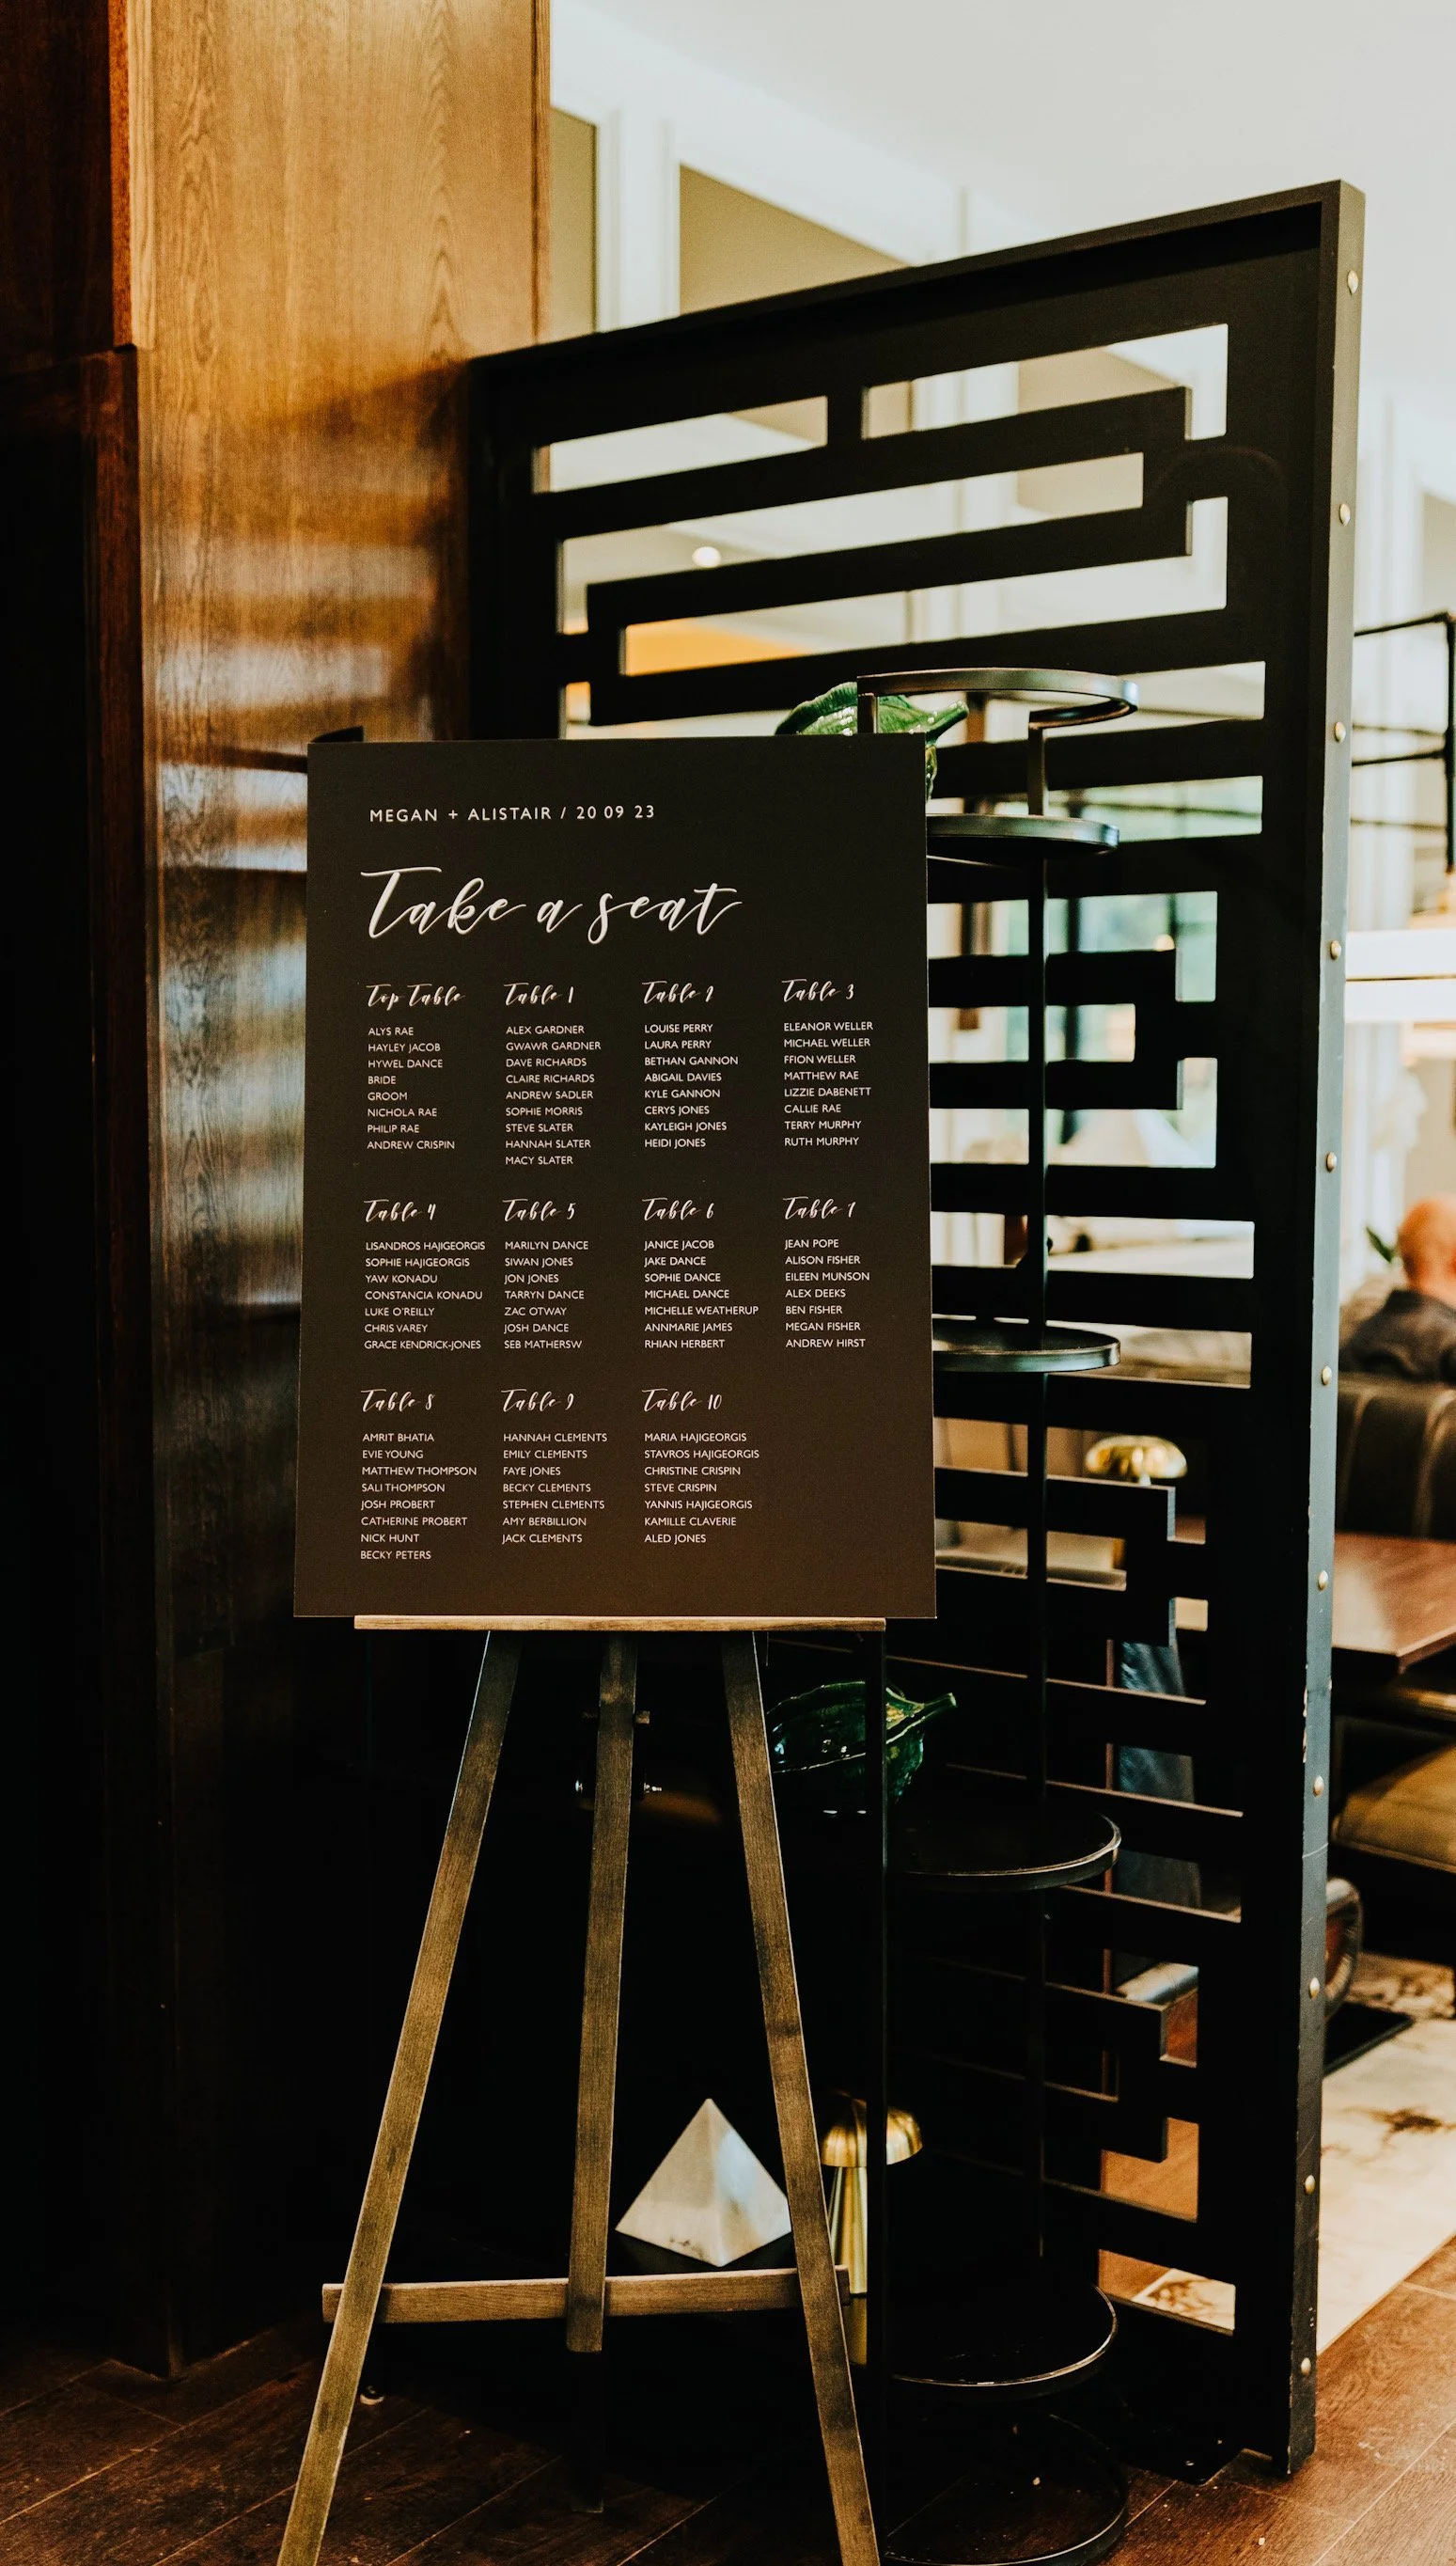 MEGAN + ALISTAIR / 20 09 23
Take a seat
Top Table
ALYS RAE
HAYLEY JACOB
HYWEL DANCE
BRIDE
GROOM
NICHOLA RAE
PHILIP RAE
ANDREW CRISPIN
Table 1
ALEX GARDNER
GWAWR GARDNER
DAVE RICHARDS
CLAIRE RICHARDS
ANDREW SADLER
SOPHIE MORRIS
STEVE SLATER
HANNAH SLATER
MACY SLATER
Table 2
LOUISE PERRY
LAURA PERRY
BETHAN GANNON
ABIGAIL DAVIES
KYLE GANNON
CERYS JONES
KAYLEIGH JONES
HEIDI JONES
Table 3
ELEANOR WELLER
MICHAEL WELLER
FFION WELLER
MATTHEW RAE
LIZZIE DABENETT
CALLIE RAE
TERRY MURPHY
RUTH MURPHY
Table 4
LISANDROS HAJIGEORGIS
SOPHIE HAJIGEORGIS
YAW KONADU
CONSTANCIA KONADU
LUKE O'REILLY
CHRIS VAREY
GRACE KENDRICK-JONES
Table 5
MARILYN DANCE
SIWAN JONES
JON JONES
TARRYN DANCE
ZAC OTWAY
JOSH DANCE
SEB MATHERSW
Table 6
JANICE JACOB
JAKE DANCE
SOPHIE DANCE
MICHAEL DANCE
MICHELLE WEATHERUP
ANNMARIE JAMES
RHIAN HERBERT
Table 7
JEAN POPE
ALISON FISHER
EILEEN MUNSON
ALEX DEEKS
BEN FISHER
MEGAN FISHER
ANDREW HIRST
Table 8
AMRIT BHATIA
EVIE YOUNG
MATTHEW THOMPSON
SALI THOMPSON
JOSH PROBERT
CATHERINE PROBERT
NICK HUNT
BECKY PETERS
Table 9
HANNAH CLEMENTS
EMILY CLEMENTS
FAYE JONES
BECKY CLEMENTS
STEPHEN CLEMENTS
AMY BERBILLION
JACK CLEMENTS
Table 10
MARIA HAJIGEORGIS
STAVROS HAJIGEORGIS
CHRISTINE CRISPIN
STEVE CRISPIN
YANNIS HAJIGEORGIS
KAMILLE CLAVERIE
ALED JONES